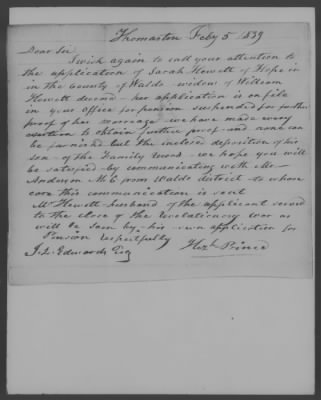 Thomaston Feby 5 1839
Dear Sir
I wish again to call your attention to
the application of Sarah Hewett of Hope in
in the County of Waldo widow of William
Hewett deceasd - her application is on file
in your Office for pension suspended for further
proof of her marriage - we have made every
exertion to obtain further proof - and none can
be furnished but the inclosed deposition of his
son - of the Family Record - we hope you will
be satisfied by communicating with Mr
Anderson M.C. from Waldo district - to whose
care this communication is sent
Mr Hewett husband of the applicant served
to the close of the Revolutionary War as
will be seen by his own application for
Pension respectfully Hezh Prince
J. L. Edwards Esq